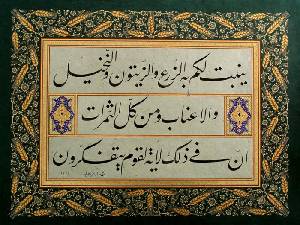 ينبت لكم به الزرع والزيتون والنخيل
والاعناب ومن كل الثمرات
ان في ذلك لآية لقوم يتفكرون